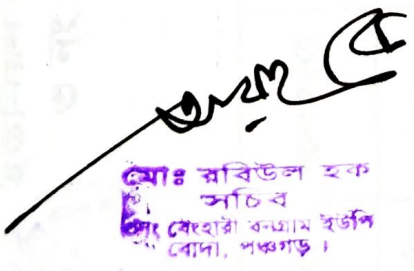 মোঃ রবিউল হক
সচিব
নং বেংহারী বনগ্রাম ইউপি
বোদা, পঞ্চগড়।